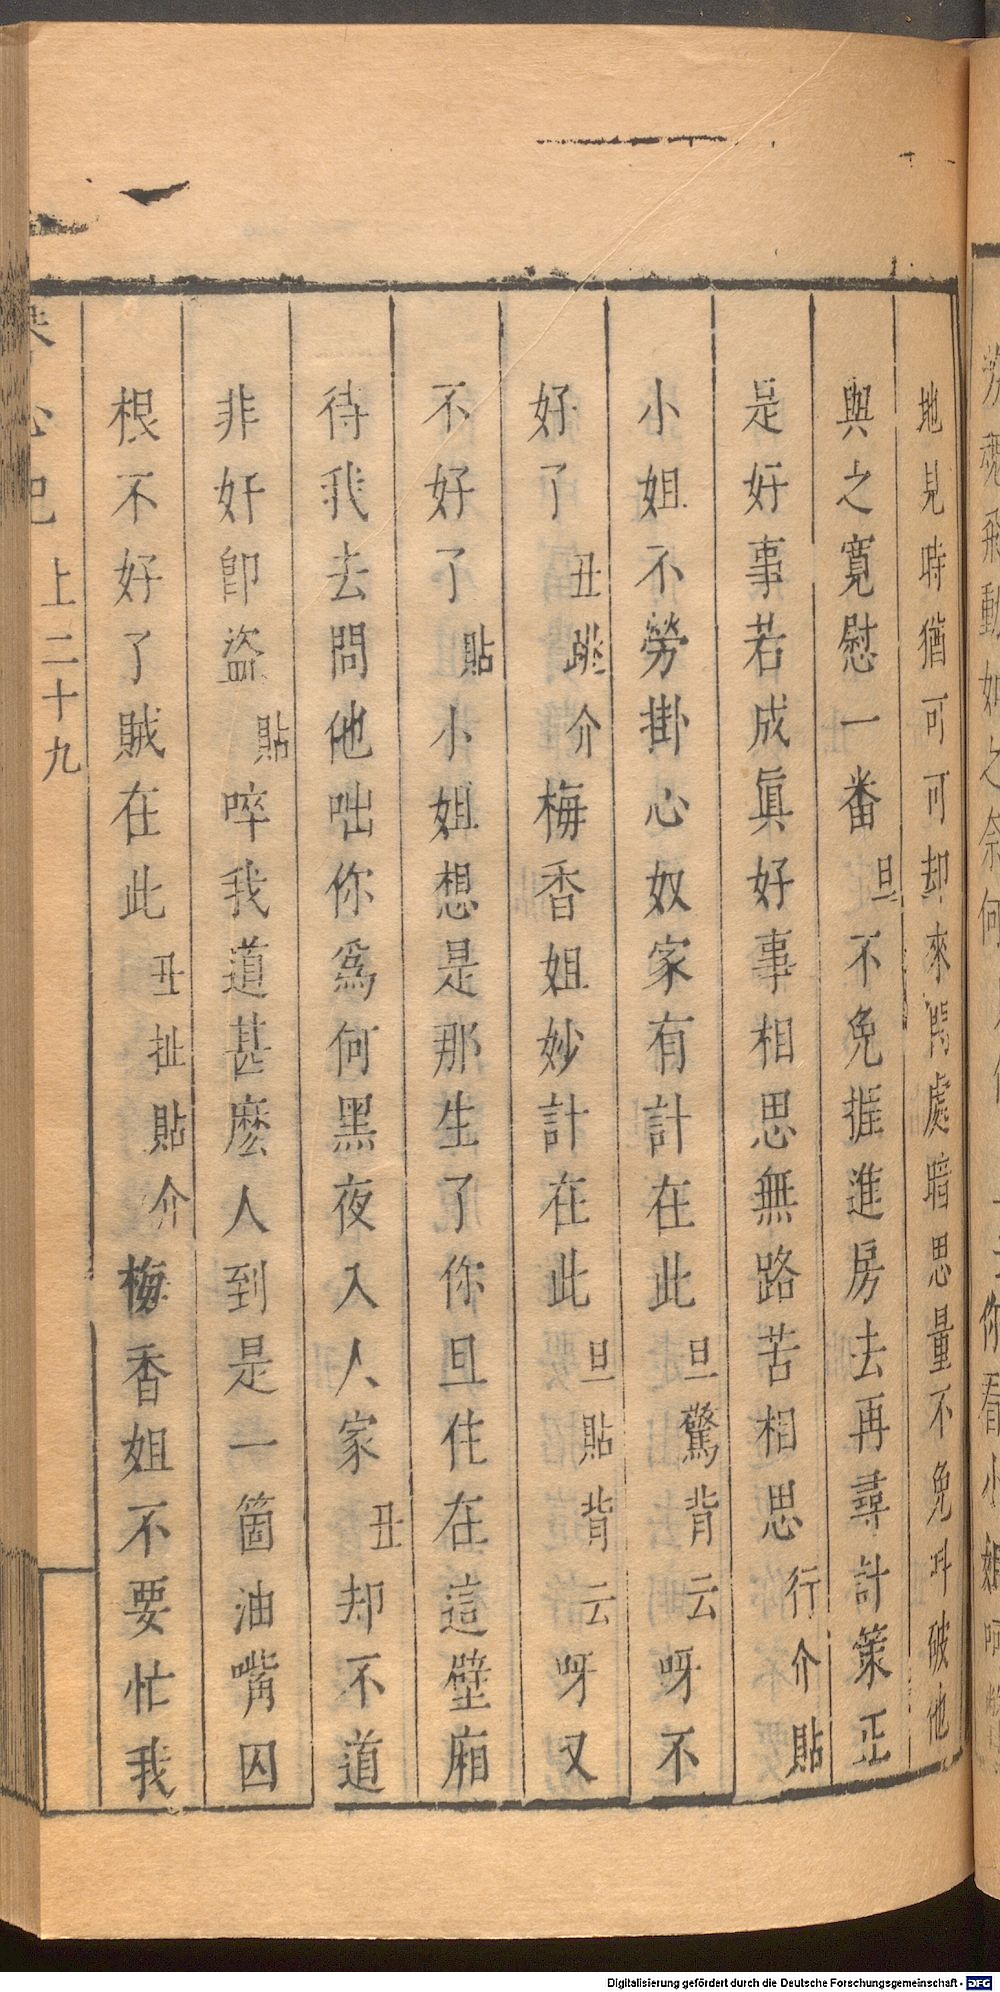 地見時猶可可却來閑處暗思量不免叫破他
與之寬慰一番旦不免捱進房去再尋計策正
是好事若成眞好事相思無路苦相思行介貼
小姐不勞掛心奴家有計在此旦驚背云呀不
好了丑跳介梅香姐妙計在此旦貼背云呀又
不好了貼小姐想是那生了你且住在這壁廂
待我去問他咄你爲何黑夜入人家丑却不道
非奸卽盜貼啐我道甚麽人到是一箇油嘴囚
根不好了賊在此丑扯貼介梅香姐不要忙我
上二十九
Digitalisierung gefördert durch die Deutsche Forschungsgemeinschaft - DFG